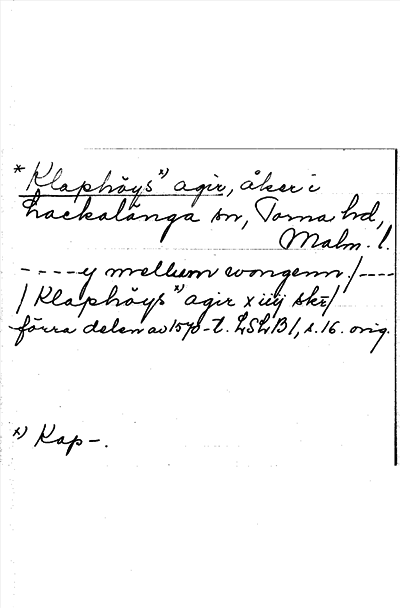 * Klaphöys x) agir, åker i
Lackalänga sn, Torna hd,
Malm. l.
----y mellum wongenn./----
/ Klaphöys x) agir x iiij skr/
förra delen av 1570-t. LSLB1, s. 16. orig.
x) Kap-.